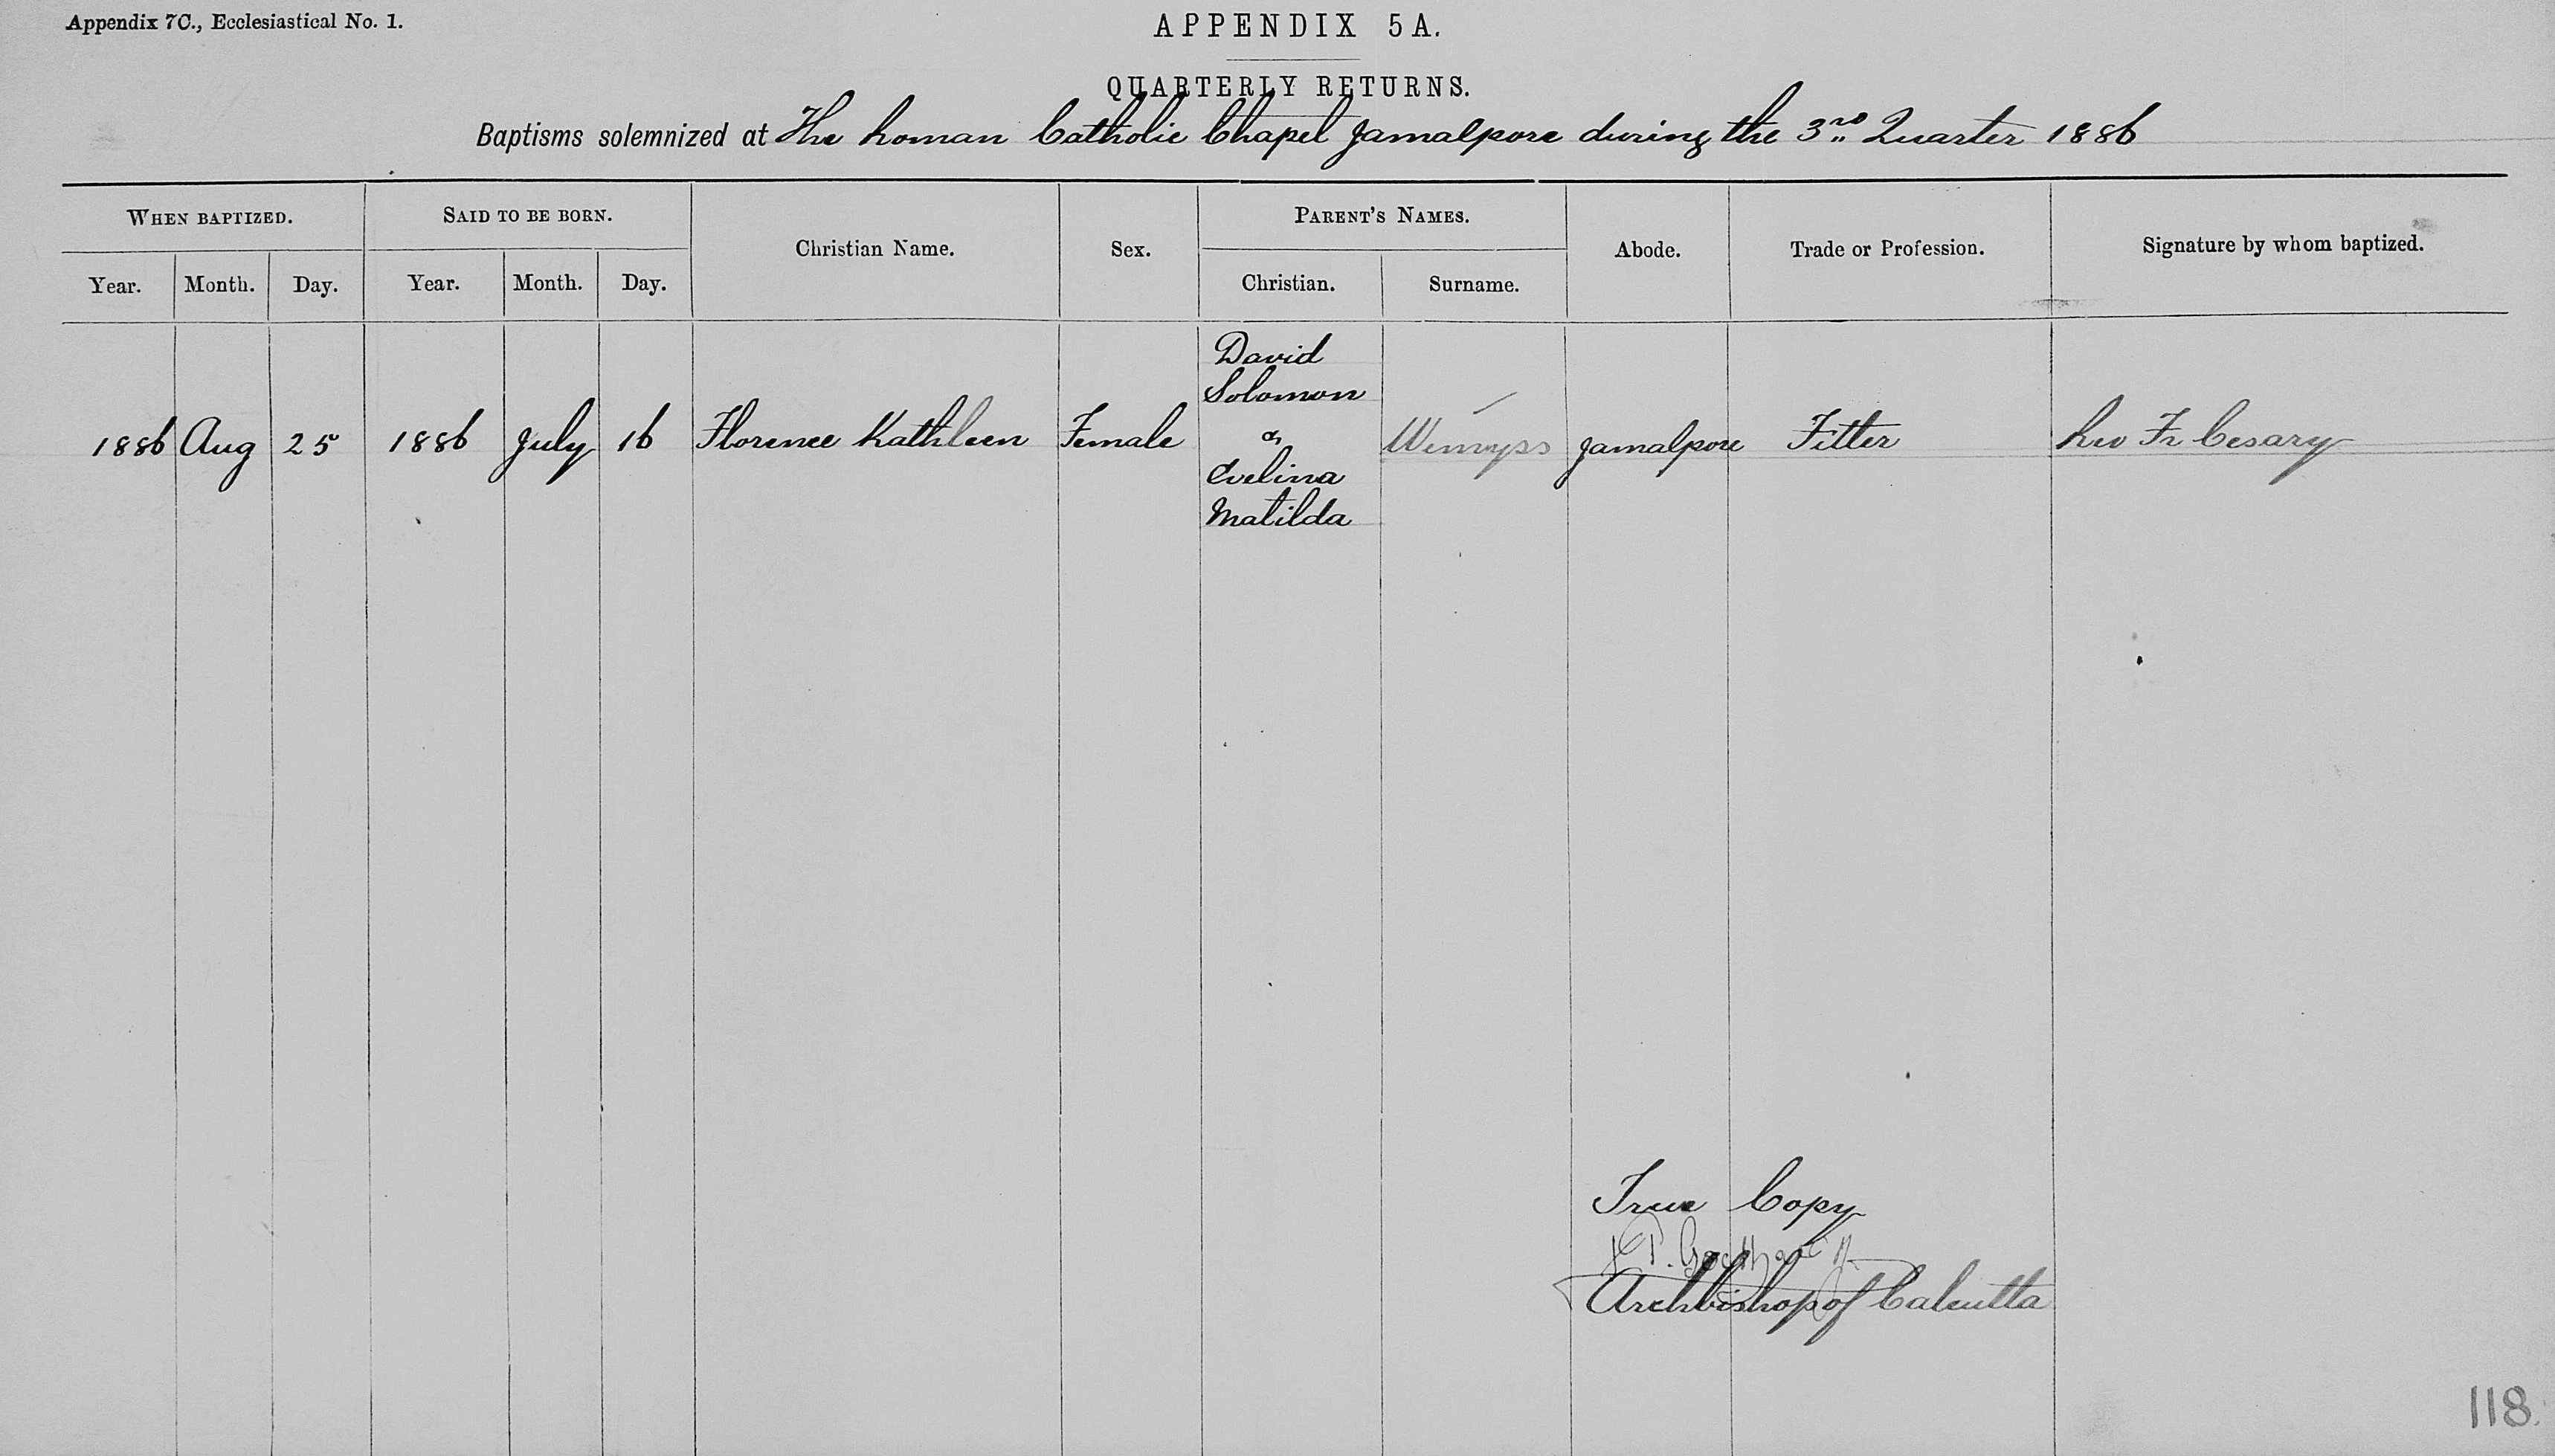 Appendix 7C., Ecclesiastical No. 1.
APPENDIX 5A.
QUARTERLY RETURNS.
Baptisms solemnized at The Roman Catholic Chapel Jamalpore during the 3rd Quarter 1886
WHEN BAPTIZED. SAID TO BE BORN. Christian Name. Sex. PARENT'S NAMES. Abode. Trade or Profession. Signature by whom baptized.
Year. Month. Day. Year. Month. Day. Christian. Surname.
David
Solomon
1886 Aug 25 1886 July 16 Florence Kathleen Female & Wemyss Jamalpore Fitter Rev Fr Cesary
Evelina
Matilda
True Copy
Archbishop of Calcutta
118